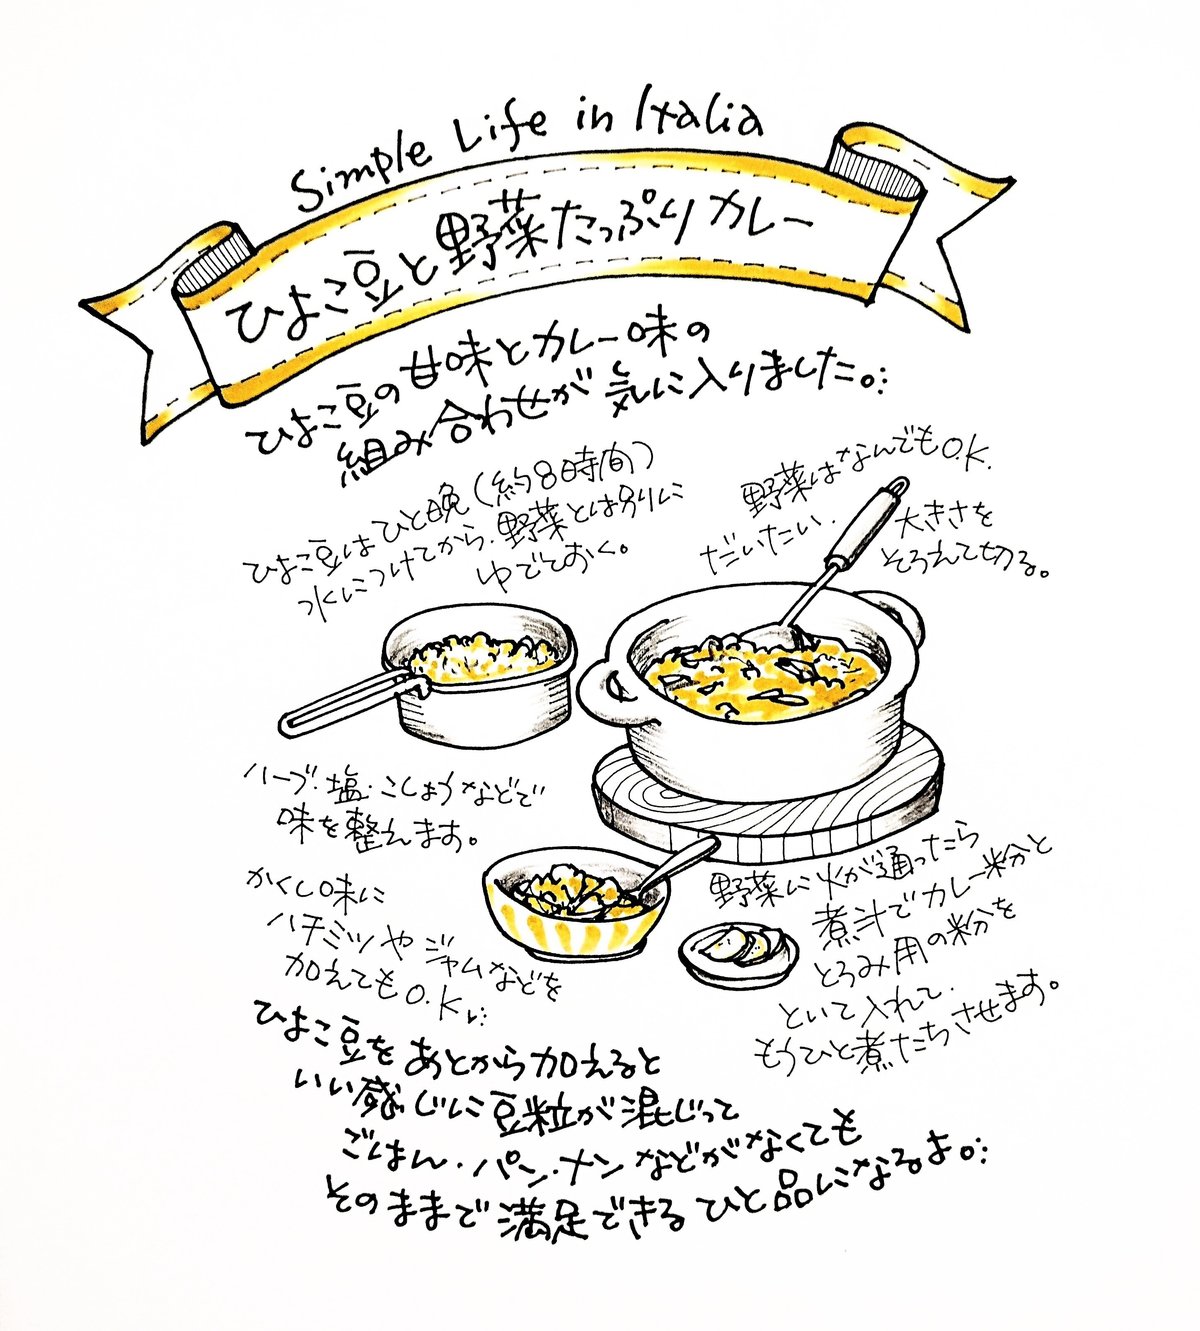 Simple Life in Italia
ひよこ豆と野菜たっぷりカレー
ひよこ豆の甘味とカレー味の
組み合わせが気に入りました。
ひよこ豆はひと晩(約8時間)
水につけてから、野菜とは別に
ゆでておく。
野菜はなんでもO.K.
だいたい、大きさを
そろえて切る。
ハーブ・塩・こしょうなどで
味を整えます。
かくし味に
ハチミツやジャムなどを
加えてもO.K.
野菜に火が通ったら
煮汁でカレー粉と
とろみ用の粉を
といて入れて、
もうひと煮たちさせます。
ひよこ豆をあとから加えると
いい感じに豆粒が混じって
ごはん・パン・ナンなどがなくても
そのままで満足できるひと品になるよ。